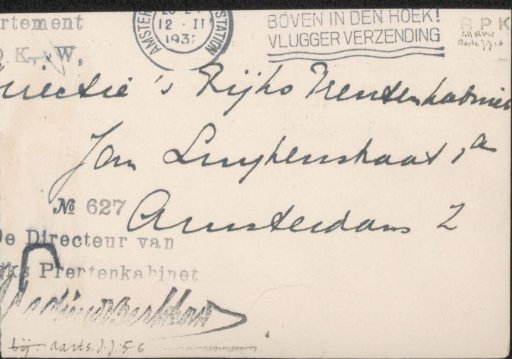 rtement
K. W.
AMSTER STATION
12-II
193
BOVEN IN DEN HOEK!
VLUGGER VERZENDING
RPK
Aarts J.J. 6
Directie 's Rijks Prentenkabinet
Jan Luykenstraat 1a
№ 627
Amsterdam Z
De Directeur van
Prentenkabinet
bij Aarts. J.J. 56